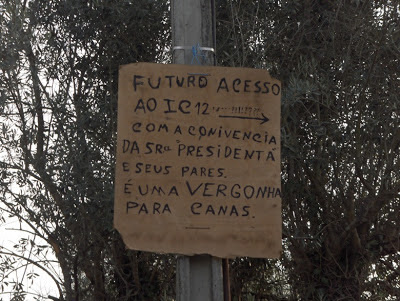 FUTURO ACESSO
AO IC12
COM A CONIVENCIA
DA SRª "PRESIDENTA"
E SEUS PARES.
É UMA VERGONHA
PARA CANAS.